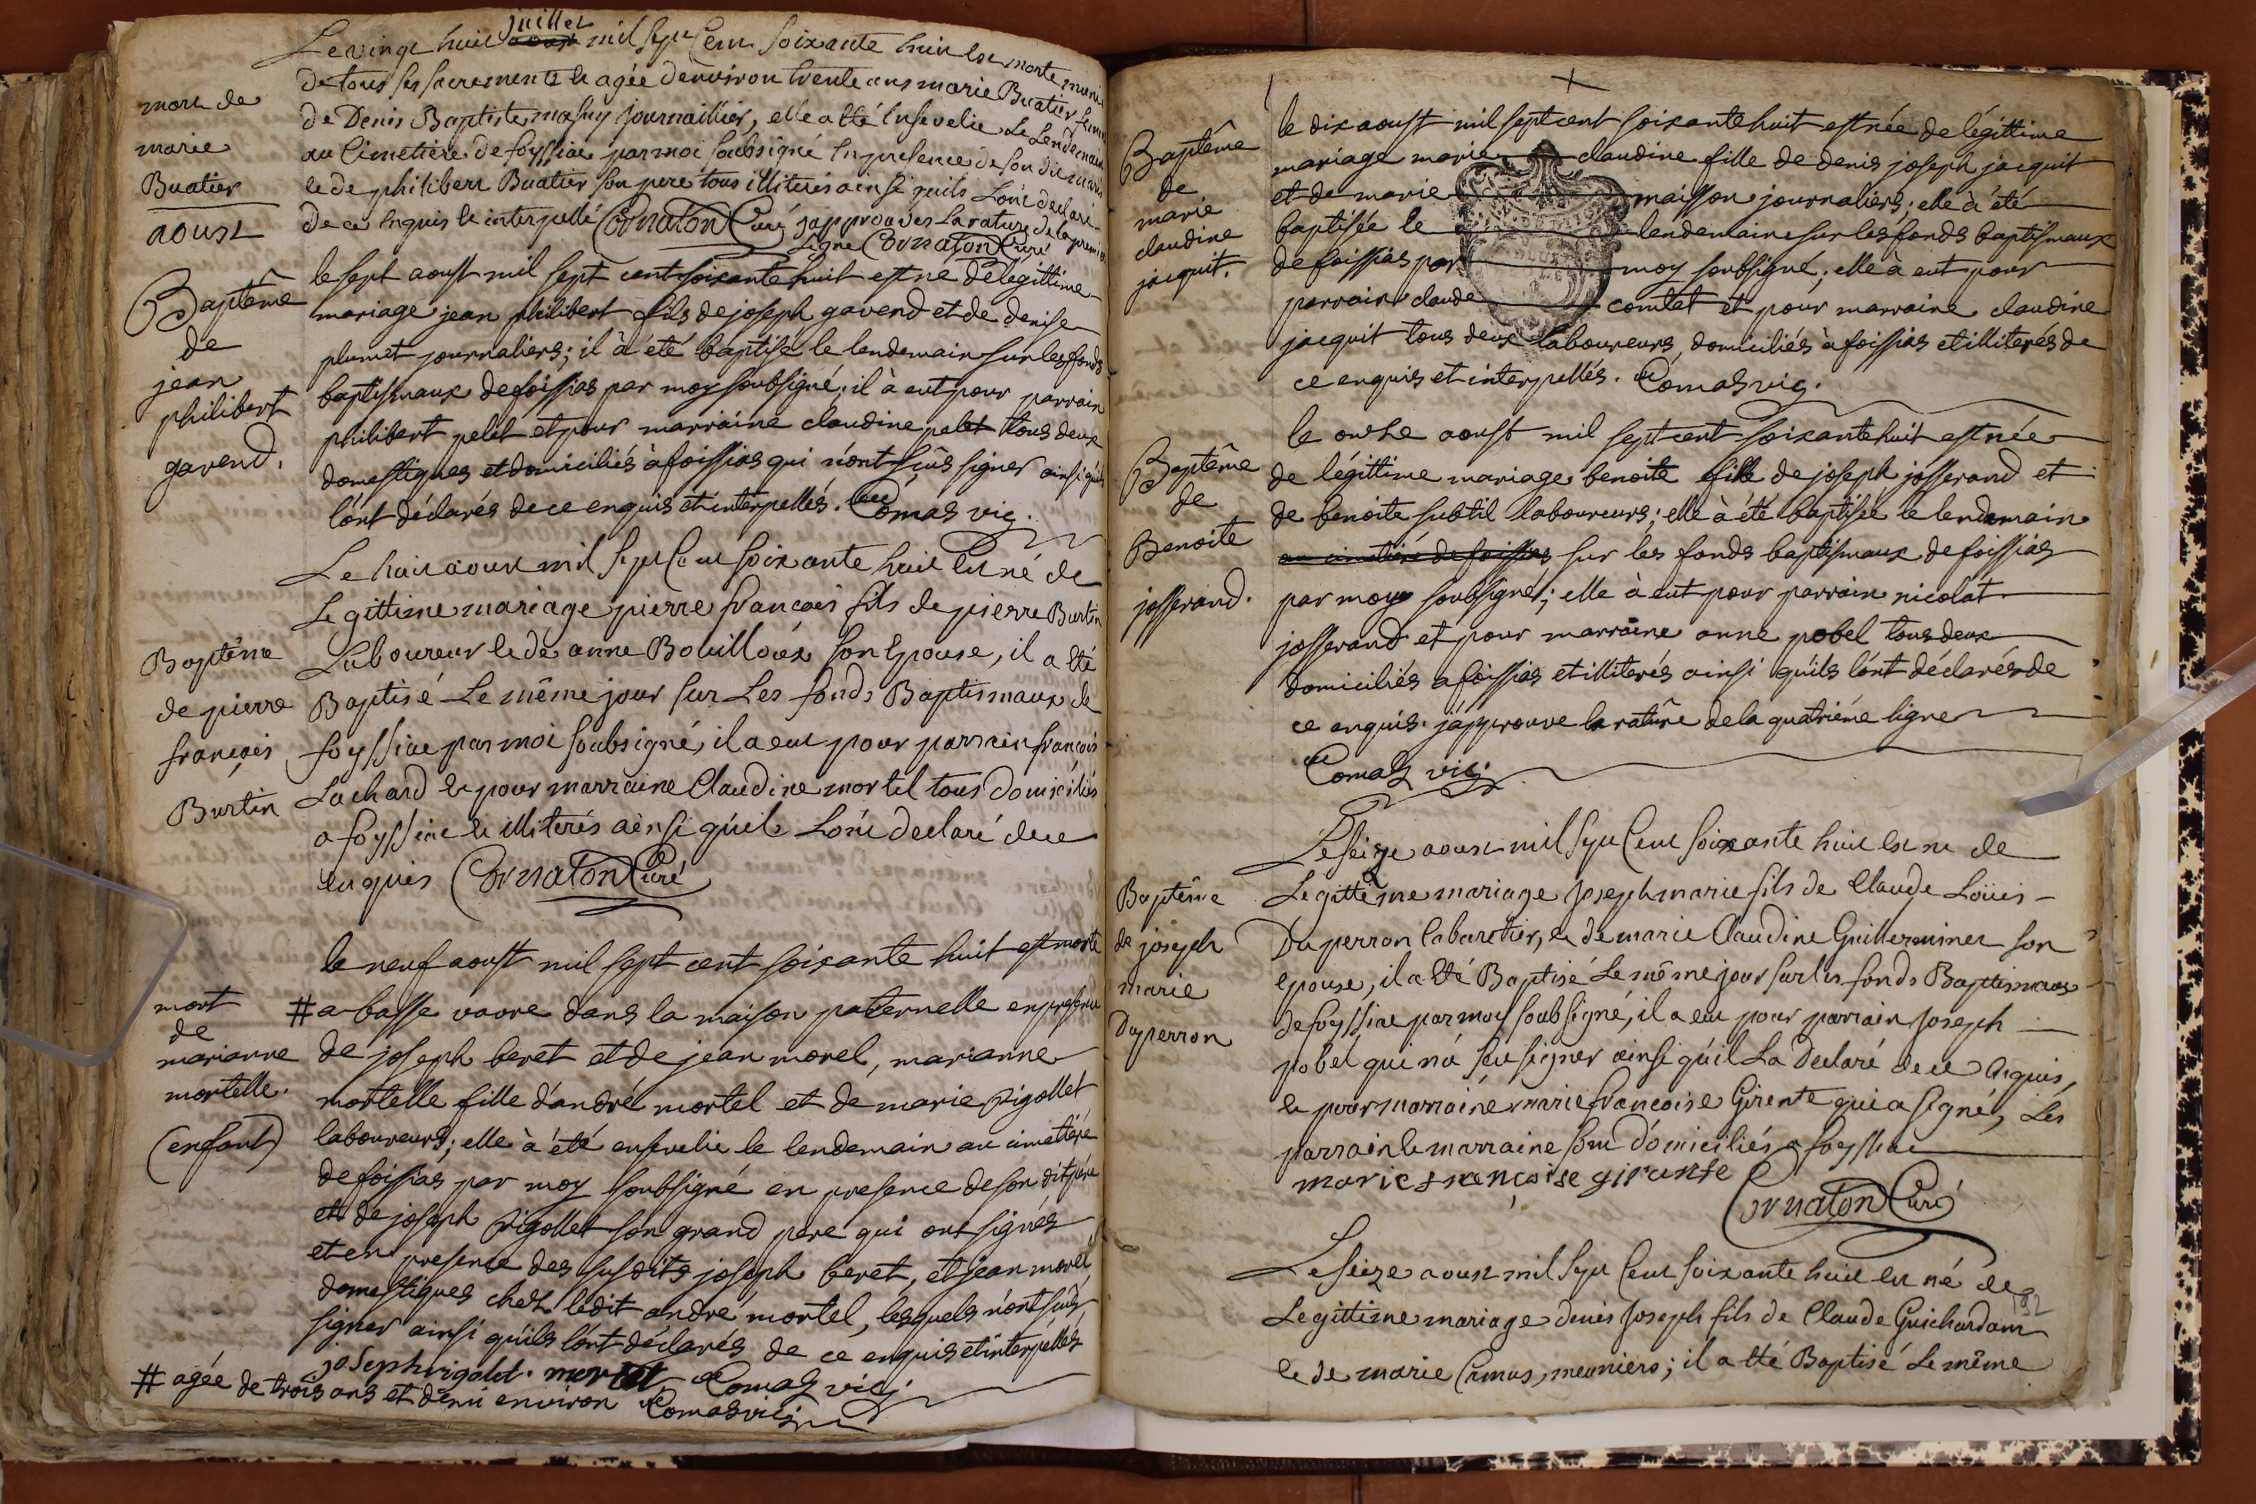 juillet
Le vingt huit aoust mil sept Cent soixante huit est morte munie
de tous ses sacrements et agée denviron trente ans marie Buatier femme
de Denis Baptiste masuy journaillier, elle a eté Ensevelie Le Lendemain
au Cimetiere de foyssiac par moi soubsigné En presence de son dit mari
et de philibert Buatier son pere tous illiterés ainsi quils Lont declaré
de ce Enquis et interpellé Cornaton Curé japprouves La rature de la premiere
ligne Cornaton Curé
mort de
marie
Buatier
aoust
Baptême
de
jean
philibert
gavend.
le sept aoust mil sept cent soixante huit est né de legittime
mariage jean philibert fils de joseph gavend et de denise
plumet journaliers; il à été baptisé le lendemain sur les fonds
baptismaux de foissias par moy soubsigné; il à eut pour parrain
philibert pelet et pour marraine claudine pelet tous deux
domestiques et domiciliés à foissias qui n'ont sçûs signer ainsi qu'ils
l'ont déclarés de ce enquis et interpellés. Comas vic.
Baptême
de pierre
françois
Burtin
Le huit aoust mil sept Cent soixante huit Est né de
Legittime mariage pierre françois fils de pierre Burtin
Laboureur et de anne Bouilloux son Epouse, il a eté
Baptisé Le même jour sur Les fonds Baptismaux de
foyssiac par moi soubsigné, il a eut pour parrain françois
Lachard et pour marraine Claudine mortel tous Domiciliés
a foyssiac et illiterés ainsi qu'ils Lont declaré de ce
enquis Cornaton Curé
mort
de
marianne
mortelle.
(enfant)
le neuf aoust mil sept cent soixante huit est morte
# a basse vavre dans la maison paternelle en presence
de joseph beret et de jean morel, marianne
mortelle fille d'andré mortel et de marie Rigollet
laboureurs; elle à été ensevelie le lendemain au cimetière
de foissias par moy soubsigné en presence de son dit père
et de joseph Rigollet son grand pere qui ont signés
et en presence des susdits joseph beret, et jean morel
domestiques chez ledit andré mortel, lesquels n'ont sçûs
signer ainsi qu'ils l'ont déclarés de ce enquis et interpellés
joseph rigolet. mortel Comas vic.
# agée de trois ans et demi environ Comas vic.
Baptême
de
marie
claudine
jacquit.
le dix aoust mil sept cent soixante huit est née de légittime
mariage marie claudine fille de denis joseph jacquit
et de marie maisson journaliers; elle à été
baptisée le lendemain sur les fonds baptismaux
de foissias par moy soubsigné; elle à eut pour
parrain claude comtet et pour marraine claudine
jacquit tous deux laboureurs, domiciliés à foissias et illiterés de
ce enquis et interpellés. Comas vic.
Baptême
de
Benoite
josserand.
le onze aoust mil sept cent soixante huit est née
de légittime mariage benoite fille de joseph josserand et
de benoite subtil laboureurs; elle à été baptisée le lendemain
au cimetière de foissias sur les fonds baptismaux de foissias
par moy soubsigné; elle à eut pour parrain nicolat
josserand et pour marraine anne pobel tous deux
domiciliés a foissias et illiterés ainsi qu'ils l'ont déclarés de
ce enquis. j'approuve la ratûre de la quatrième ligne
Comas vic.
Baptême
de joseph
marie
Duperron
Le seize aoust mil sept Cent soixante huit est né de
Legittime mariage joseph marie fils de Claude Loüis
Duperron Cabaretier, et de marie Claudine Guillerminet son
epouse, il a eté Baptisé Le même jour sur les fonds Baptismaux
de foyssiac par moy soubsigné, il a eut pour parrain joseph
pobel qui n'a sçu signer ainsi qu'il La Declaré de ce Enquis,
et pour marraine marie françoise Girente qui a signé, Les
parrain et marraine sont domiciliés a foyssiac
marie françoise girante
Cornaton Curé
Le seize aoust mil sept Cent soixante huit est né de
192
Legittime mariage denis Joseph fils de Claude Guichardam
et de marie Cimas, meuniers; il a eté Baptisé Le même